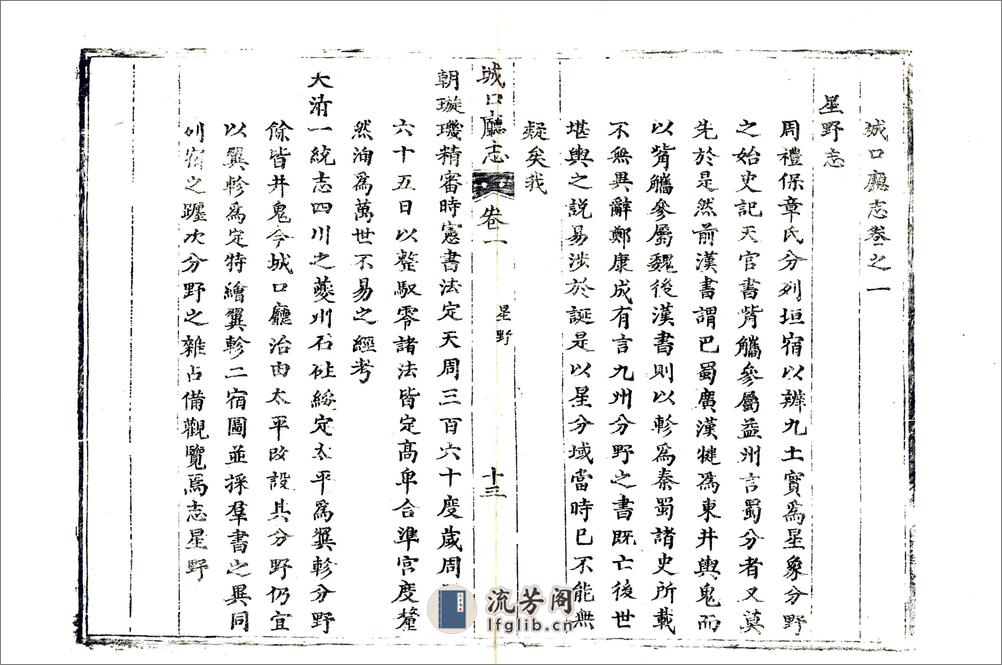 城口廳志卷一之一
星野志
周禮保章氏分列垣宿以辨九土實為星象分野
之始史記天官書觜觿參屬益州言蜀分者又莫
先於是然前漢書謂巴蜀廣漢犍為東井輿鬼而
以觜觿參屬魏後漢書則以軫為秦蜀諸史所載
不無異辭鄭康成有言九州分野之書既亡後世
堪輿之説易涉於誕是以星分域當時已不能無
疑矣我
城口廳志
卷一
星野
十三
朝璇璣精審時憲書法定天周三百六十度歲周
六十五日以整馭零諸法皆定高卑合準宮度釐
然洵為萬世不易之經考
大清一統志四川之夔州石砫綏定太平為翼軫分野
餘皆井鬼今城口廳治由太平改設其分野仍宜
以翼軫為定特繪翼軫二宿圖並採羣書之異同
列宿之躔次分野之雜占備觀覽焉志星野
流芳阁
lfglib.cn